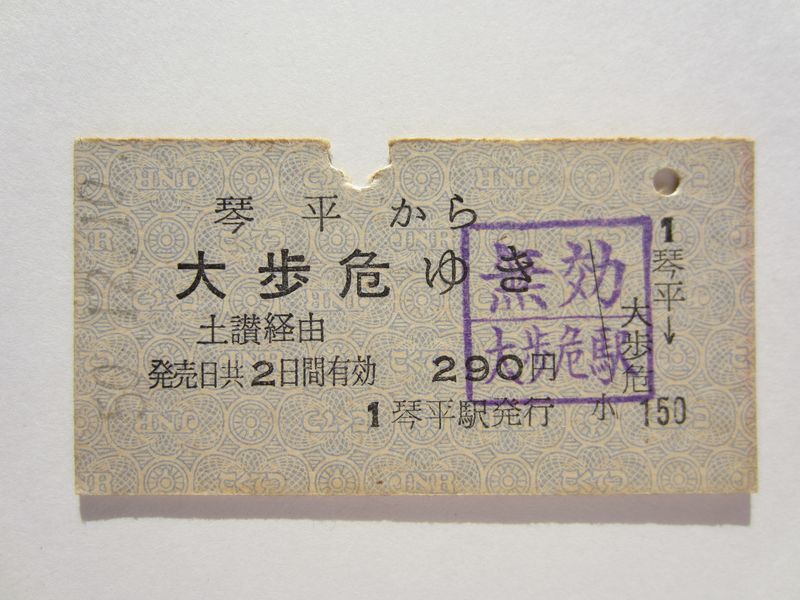 琴平から
大歩危ゆき
土讃経由
発売日共2日間有効 290円
1 琴平駅発行 小 150
1
琴平→
大歩危
無効
大歩危駅
JNR